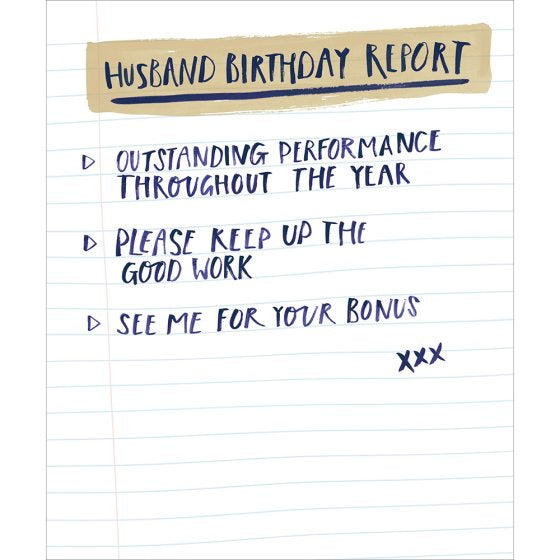 HUSBAND BIRTHDAY REPORT
▷ OUTSTANDING PERFORMANCE
THROUGHOUT THE YEAR
▷ PLEASE KEEP UP THE
GOOD WORK
▷ SEE ME FOR YOUR BONUS
XXX